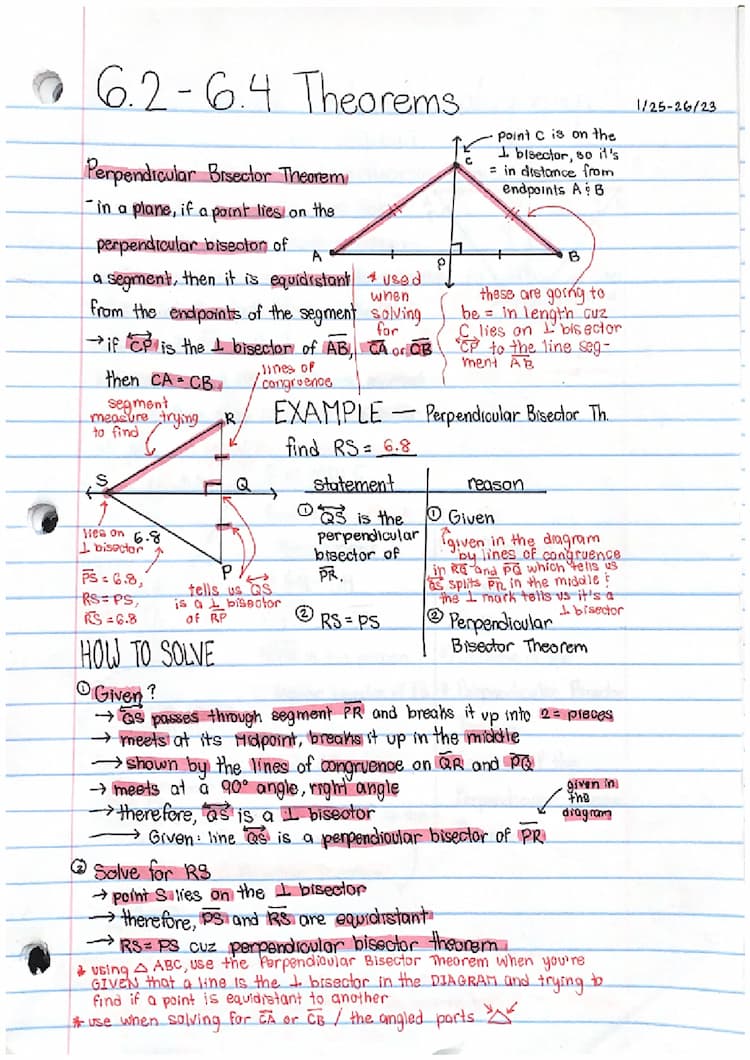 6.2 - 6.4 Theorems
1/25-26/23
point C is on the
⊥ bisector, so it's
= in distance from
endpoints A & B
Perpendicular Bisector Theorem
- in a plane, if a point lies on the
perpendicular bisector of
a segment, then it is equidistant
from the endpoints of the segment
→ if CP is the ⊥ bisector of AB,
then CA = CB
C
A
P
B
* used
when
solving
for
CA or CB
these are going to
be = in length cuz
C lies on ⊥ bisector
CP to the line seg-
ment AB
lines of
congruence
segment
measure trying
to find
R
S
Q
6.8
P
lies on
⊥ bisector
PS = 6.8,
RS = PS,
RS = 6.8
tells us QS
is a ⊥ bisector
of RP
EXAMPLE — Perpendicular Bisector Th.
find RS = 6.8
statement reason
① QS is the
perpendicular
bisector of
PR.
① Given
given in the diagram
by lines of congruence
in RQ and PQ which tells us
QS splits PR in the middle &
the ⊥ mark tells us it's a
⊥ bisector
② RS = PS
② Perpendicular
Bisector Theorem
HOW TO SOLVE
① Given?
→ QS passes through segment PR and breaks it up into 2 = pieces
→ meets at its midpoint, breaks it up in the middle
→ shown by the lines of congruence on QR and PQ
→ meets at a 90° angle, right angle
→ therefore, QS is a ⊥ bisector
→ Given: line QS is a perpendicular bisector of PR
given in
the
diagram
② Solve for RS
→ point S lies on the ⊥ bisector
→ therefore, PS and RS are equidistant
→ RS = PS cuz perpendicular bisector theorem
* using △ ABC, use the Perpendicular Bisector Theorem when you're
GIVEN that a line is the ⊥ bisector in the DIAGRAM and trying to
find if a point is equidistant to another
* use when solving for CA or CB / the angled parts